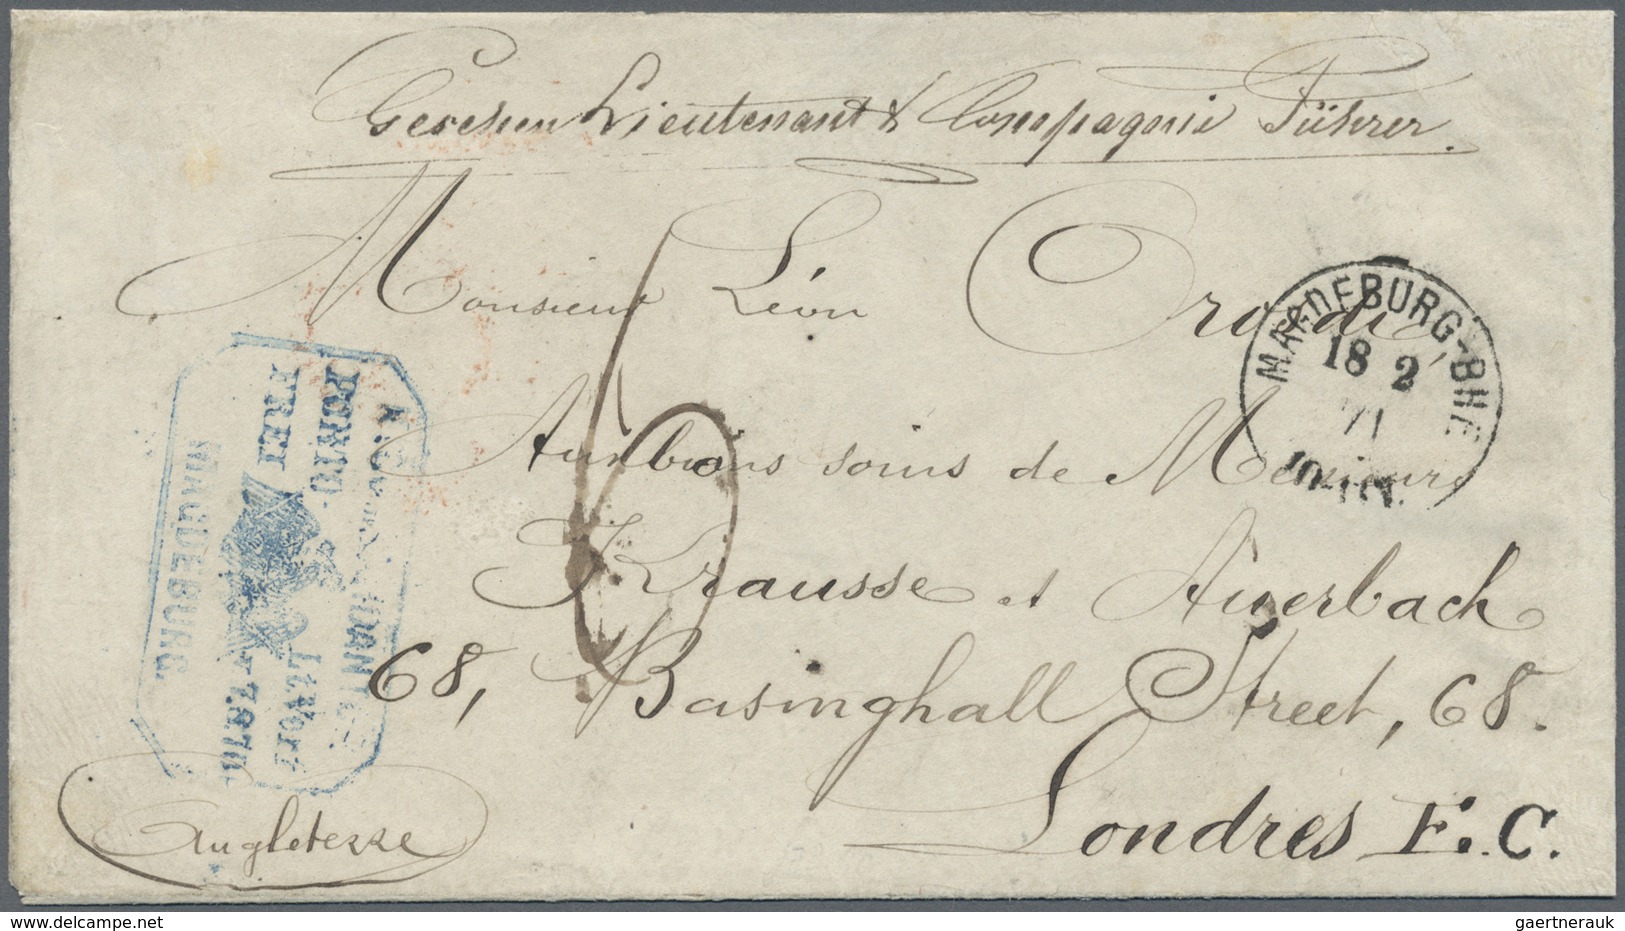 Gesehen Lieutenant & Compagnie Führer.
Monsieur Léon
Aux bons soins de Messieurs
Krausse et Auerbach
68, Basinghall Street, 68.
Londres E.C.
Angleterre
6
MAGDEBURG-BHF
18 2
71
PORTO
FREI
MAGDEBURG
gaertnerauk
www.delcampe.net